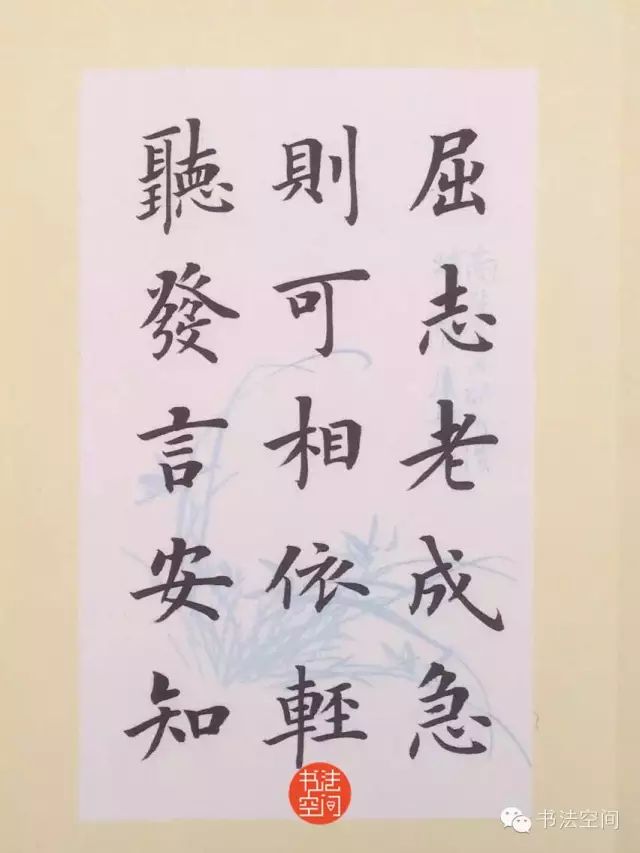 屈志老成急
則可相依輕
聽發言安知
书法空间
书法空间